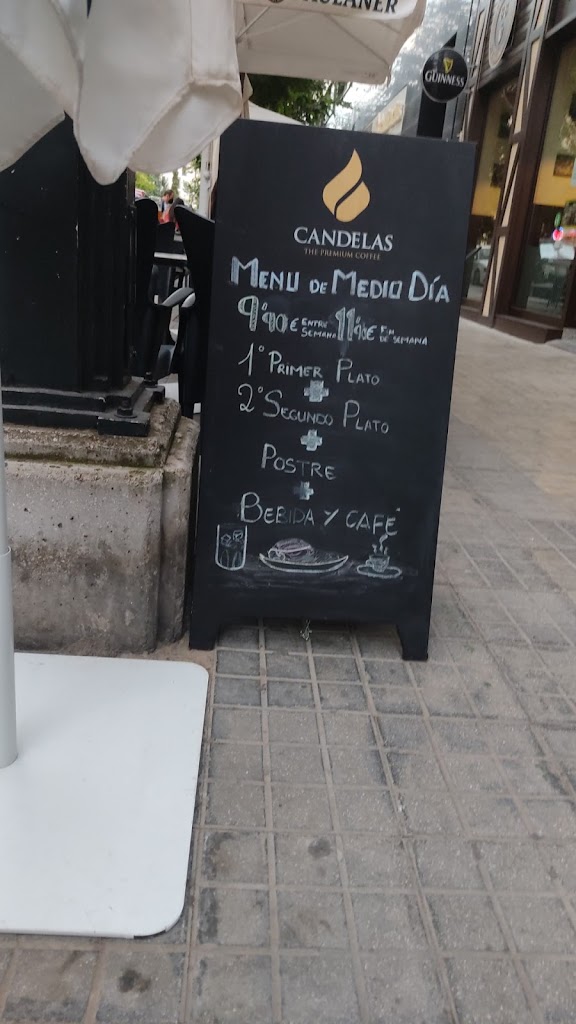 PAULANER
GUINNESS
CANDELAS
THE PREMIUM COFFEE
MENU DE MEDIO DÍA
9'90€ ENTRE SEMANA 11'90€ FIN DE SEMANA
1º PRIMER PLATO
+
2º SEGUNDO PLATO
+
POSTRE
+
BEBIDA Y CAFÉ